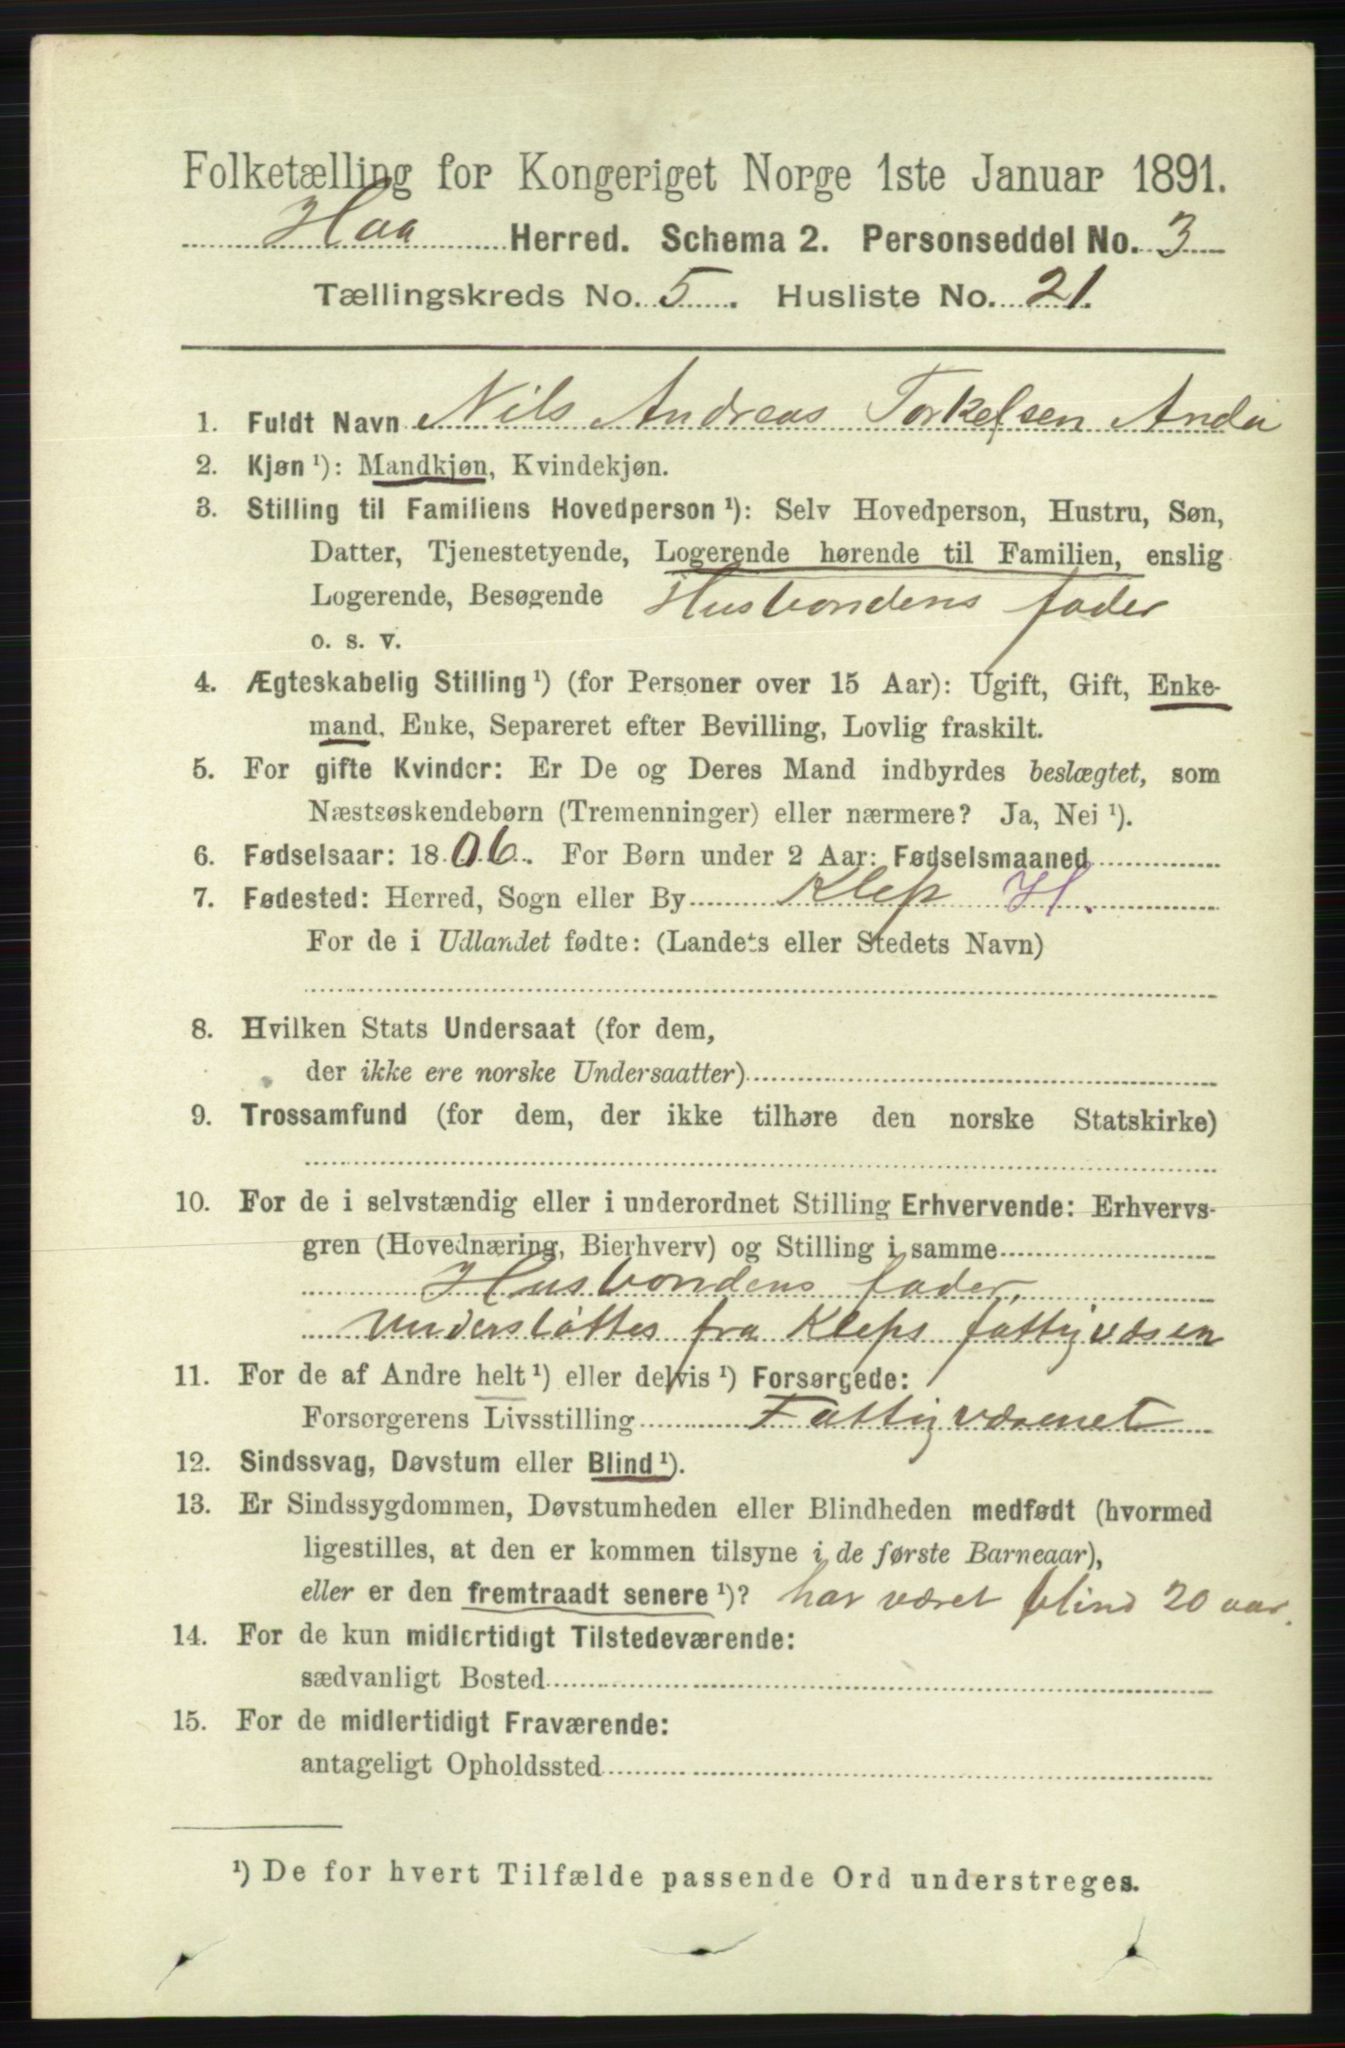 Folketælling for Kongeriget Norge 1ste Januar 1891.
Haa Herred. Schema 2. Personseddel No. 3
Tællingskreds No. 5. Husliste No. 21.
1. Fuldt Navn Nils Andreas Torkelsen Anda
2. Kjøn ¹): Mandkjøn, Kvindekjøn.
3. Stilling til Familiens Hovedperson ¹): Selv Hovedperson, Hustru, Søn,
Datter, Tjenestetyende, Logerende hørende til Familien, enslig
Logerende, Besøgende Husbondens fader
o. s. v.
4. Ægteskabelig Stilling ¹) (for Personer over 15 Aar): Ugift, Gift, Enke-
mand, Enke, Separeret efter Bevilling, Lovlig fraskilt.
5. For gifte Kvinder: Er De og Deres Mand indbyrdes beslægtet, som
Næstsøskendebørn (Tremenninger) eller nærmere? Ja, Nei ¹).
6. Fødselsaar: 1806. For Børn under 2 Aar: Fødselsmaaned
7. Fødested: Herred, Sogn eller By Klep H.
For de i Udlandet fødte: (Landets eller Stedets Navn)
8. Hvilken Stats Undersaat (for dem,
der ikke ere norske Undersaatter)
9. Trossamfund (for dem, der ikke tilhøre den norske Statskirke)
10. For de i selvstændig eller i underordnet Stilling Erhvervende: Erhvervs-
gren (Hovednæring, Bierhverv) og Stilling i samme
Husbondens fader,
understøttes fra Kleps fattigvæsen
11. For de af Andre helt ¹) eller delvis ¹) Forsørgede:
Forsørgerens Livsstilling Fattigvæsenet
12. Sindssvag, Døvstum eller Blind ¹).
13. Er Sindssygdommen, Døvstumheden eller Blindheden medfødt (hvormed
ligestilles, at den er kommen tilsyne i de første Barneaar),
eller er den fremtraadt senere ¹)? har været blind 20 aar.
14. For de kun midlertidigt Tilstedeværende:
sædvanligt Bosted
15. For de midlertidigt Fraværende:
antageligt Opholdssted
¹) De for hvert Tilfælde passende Ord understreges.